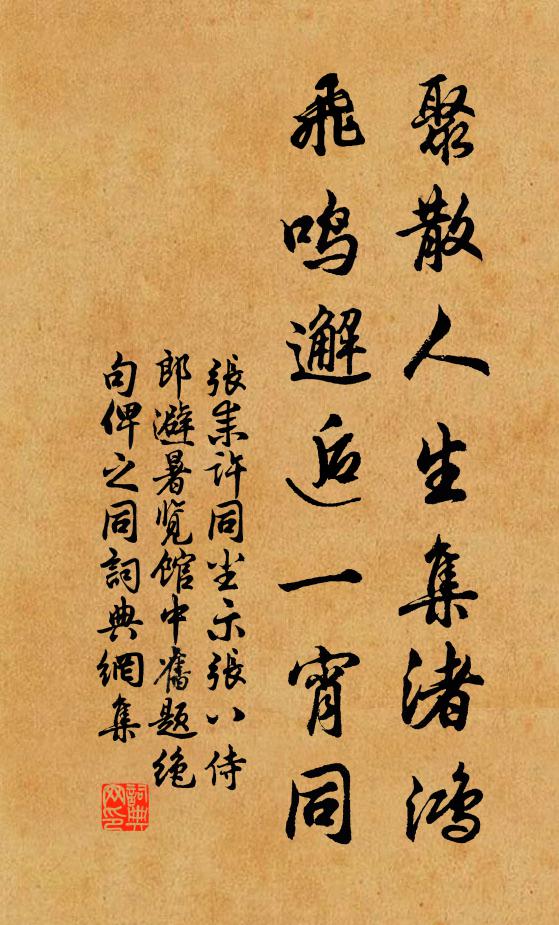 聚散人生集渚鸿
飛鸣邂逅一宵同
張耒许同尘示張八侍
郎避暑览馆中舊题绝
句俾之同詞典網集
詞典网印